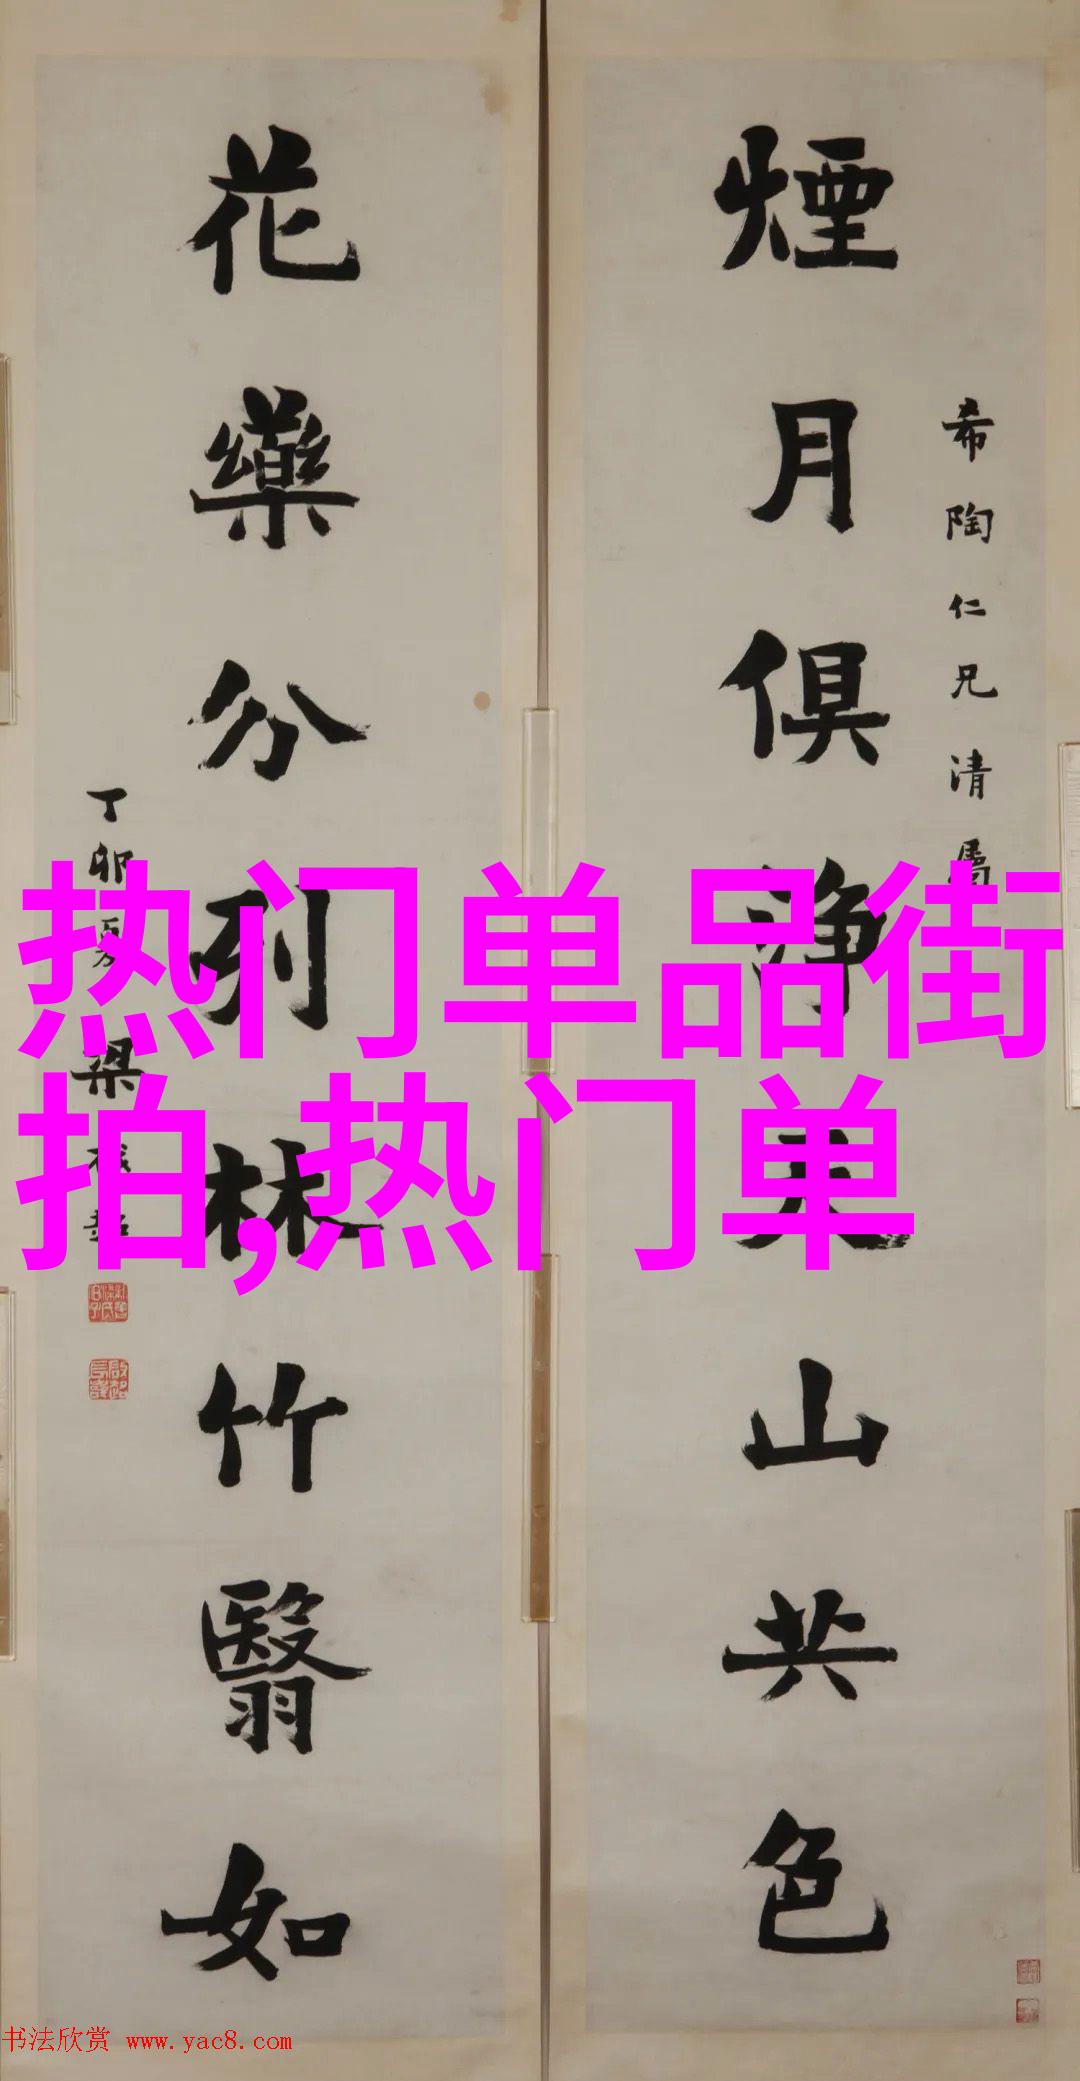 煙月俱淨天山共色
希陶仁兄清屬
花藥分列林竹翳如
丁卯夏 梁啟超
热门单品街
拍,热门单
书法欣赏 www.yac8.com